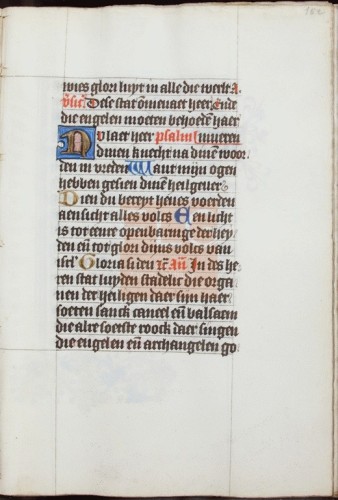 wies glori luyt in alle die werlt A
v̄sic. Dese stat om̄evaet heer. Ende
die engelen moeten behoedē haer
Nv laet heer psalm̄ in vreden
dinen knecht na dinē woor
den in vreden Want mijn ogen
hebben gesien dinē heilgever
Dien du bereyt heves voerden
aensicht alles volcs Een licht
is tot eenre openbaringe der hey
den eñ tot glori dijns volcs van
isrl' Gloria si den
ren stat luyden stadelic die orga
nen der heiligen daer sijn haer
soeten sanck caneel eñ balsaem
die alre soetste roock daer singen
die engelen eñ archangelen go